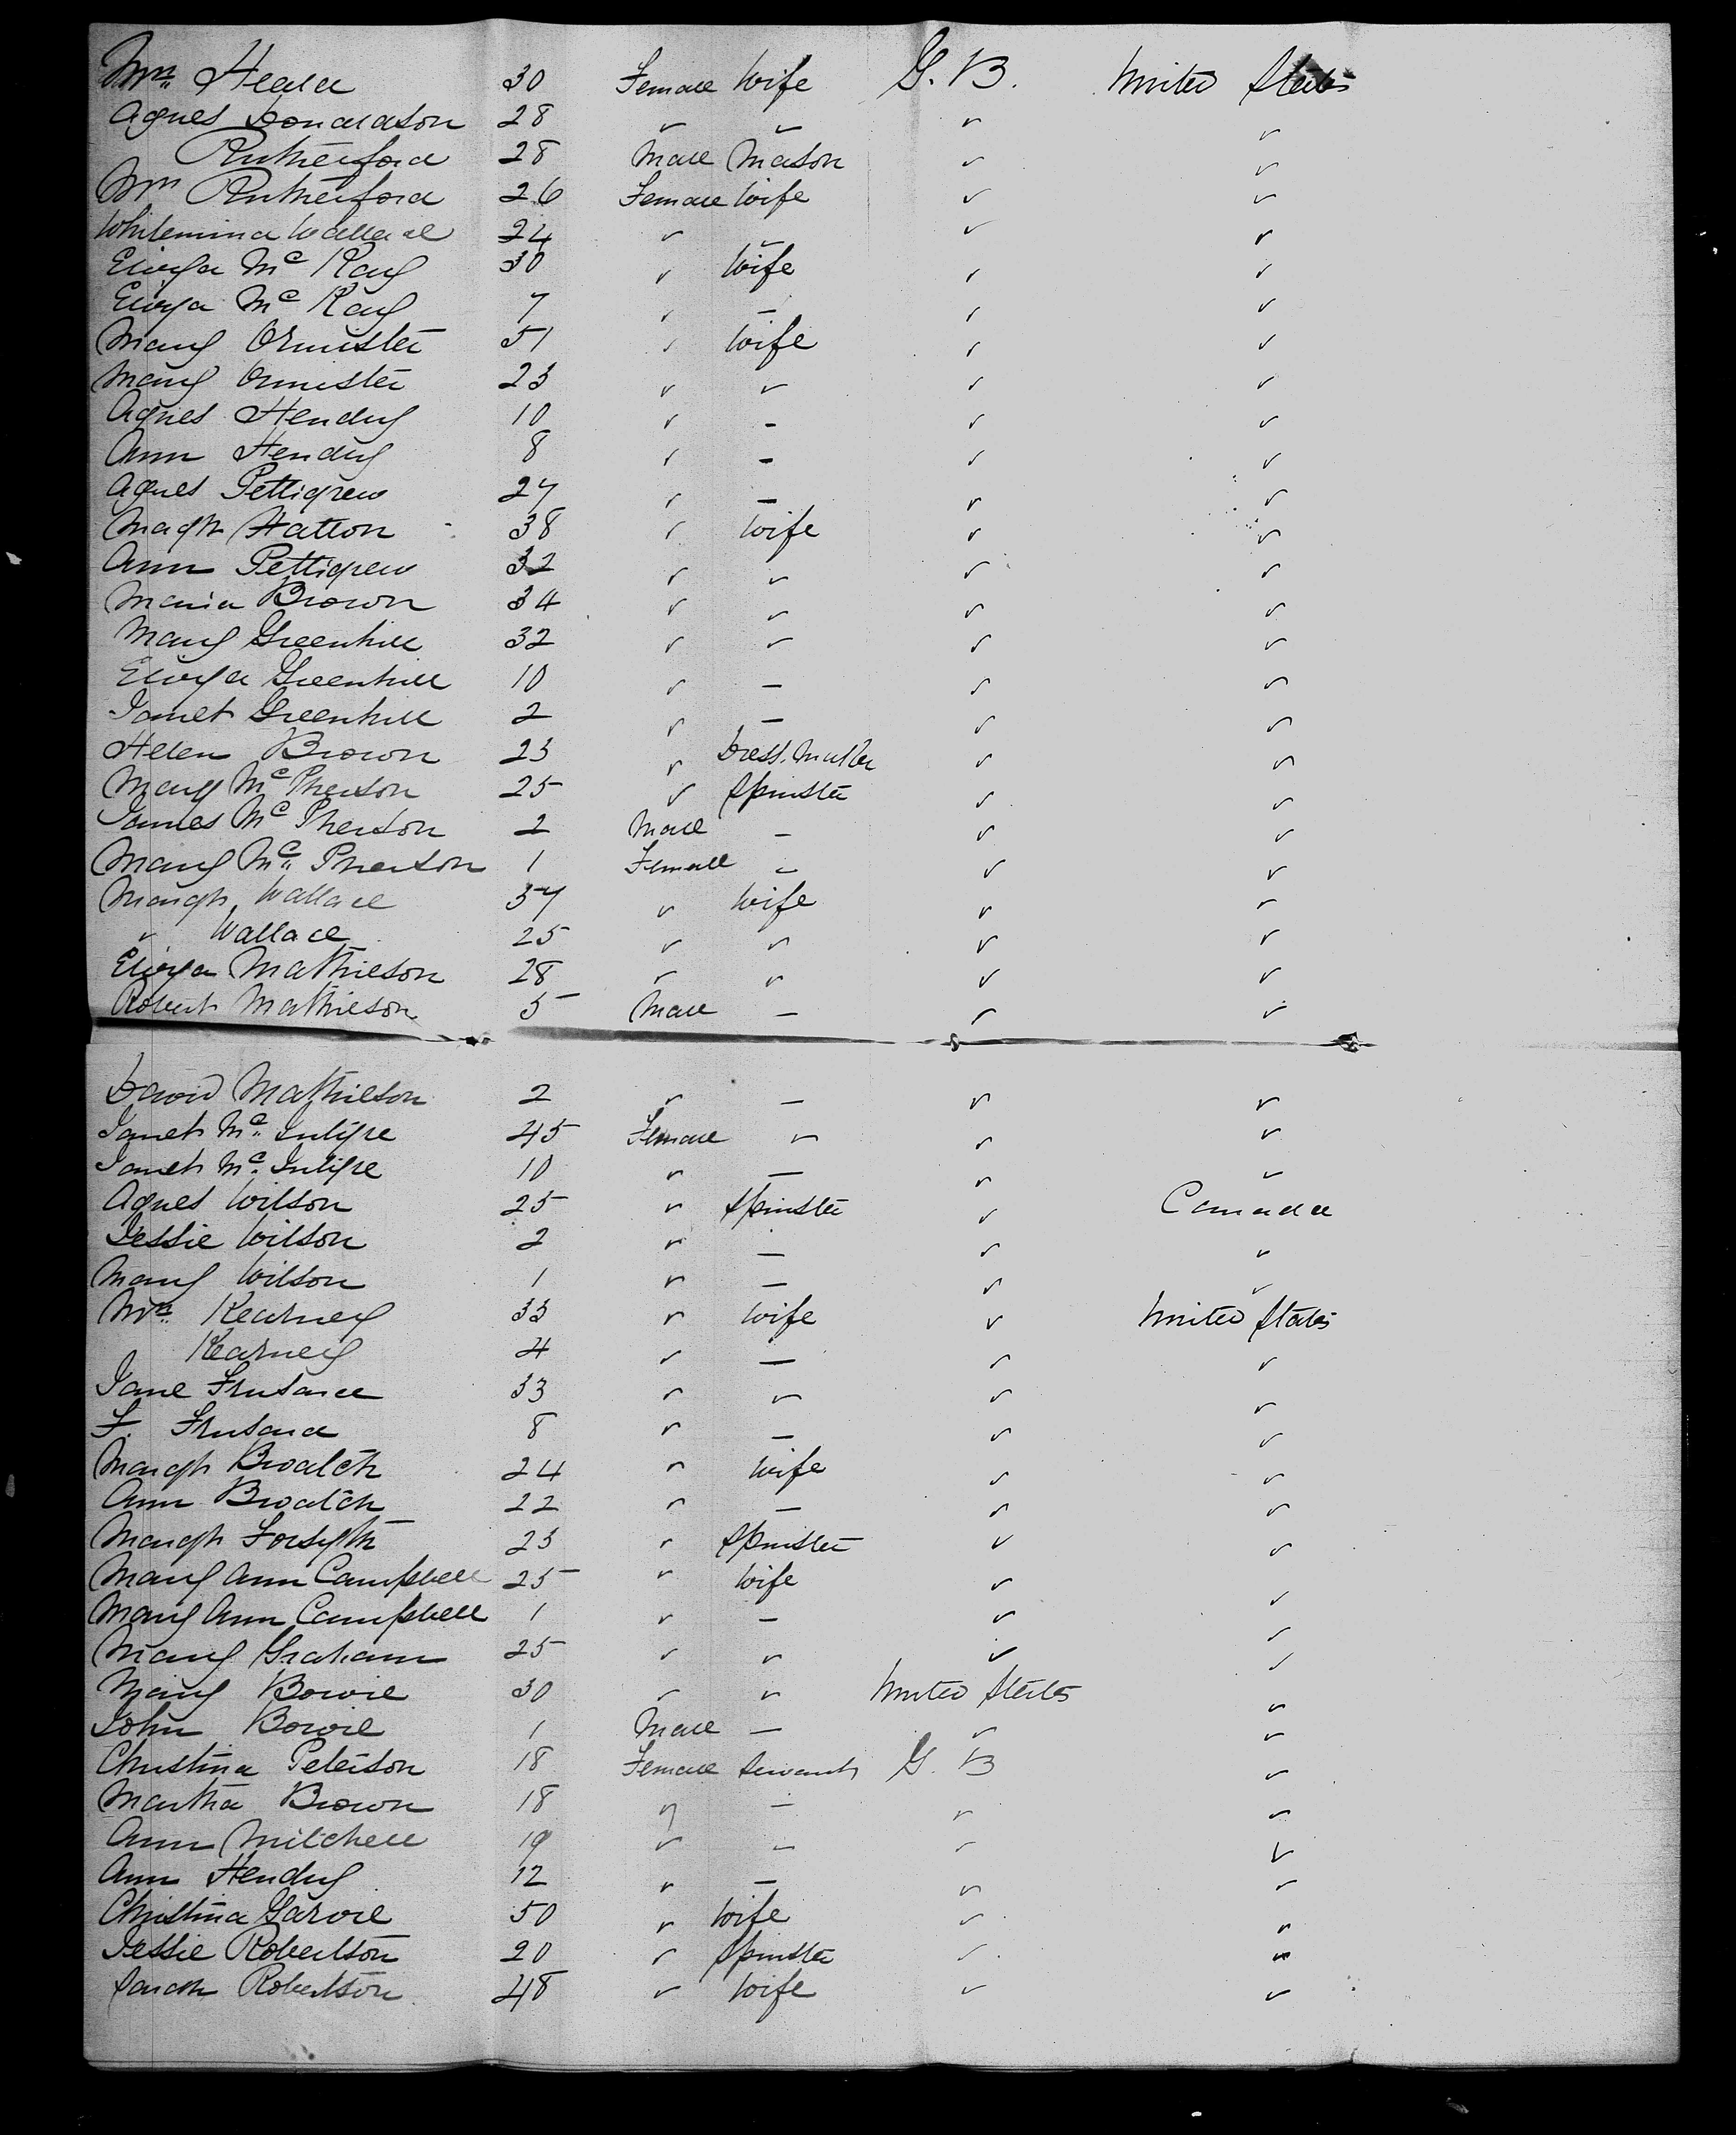 Mrs. Heard 30 Female Wife G. B. United States
Agnes Donaldson 28 " " " "
Rutherford 28 Male Mason " "
Mrs Rutherford 26 Female Wife " "
Whilemina Wallace 24 " " " "
Elizga Mc Kay 30 " Wife " "
Elizga Mc Kay 7 " - " "
Mary Ormister 51 " Wife " "
Mary Ormister 23 " " " "
Agnes Hendry 10 " - " "
Ann Hendry 8 " - " "
Agnes Pettigrew 27 " - " "
Magt Hatton 38 " Wife " "
Ann Pettigrew 32 " " " "
Maria Brown 34 " " " "
Mary Greenhill 32 " " " "
Elizga Greenhill 10 " - " "
Janet Greenhill 2 " - " "
Helen Brown 23 " Dress. Maker " "
Mary Mc Pherson 25 " Spinster " "
James Mc Pherson 2 Male - " "
Mary Mc. Pherson 1 Female - " "
Margt. Wallace 57 " Wife " "
" Wallace 25 " " " "
Elizga Mathieson 28 " " " "
Robert Mathieson 5 Male - " "
David Mathieson 2 " - " "
Janet Mc. Intyre 45 Female " " "
Janet Mc. Intyre 10 " - " "
Agnes Wilson 25 " Spinster " Canada
Jessie Wilson 2 " - " "
Mary Wilson 1 " - " "
Mrs. Kearney 33 " Wife " United States
Kearney 4 " - " "
Jane 33 " " " "
F. 8 " - " "
Margt Broatch 24 " Wife " "
Ann Broatch 22 " - " "
Margt Forsyth 23 " Spinster " "
Mary Ann Campbell 25 " Wife " "
Mary Ann Campbell 1 " - " "
Mary Graham 25 " " " "
Mary Bowie 30 " " United States "
John Bowie 1 Male - " "
Christina Peterson 18 Female Servant G. B "
Martha Brown 18 " - " "
Ann Mitchell 19 " - " "
Ann Hendry 12 " - " "
Christina Garvie 50 " Wife " "
Jessie Robertson 20 " Spinster " "
Sarah Robertson 48 " Wife " "